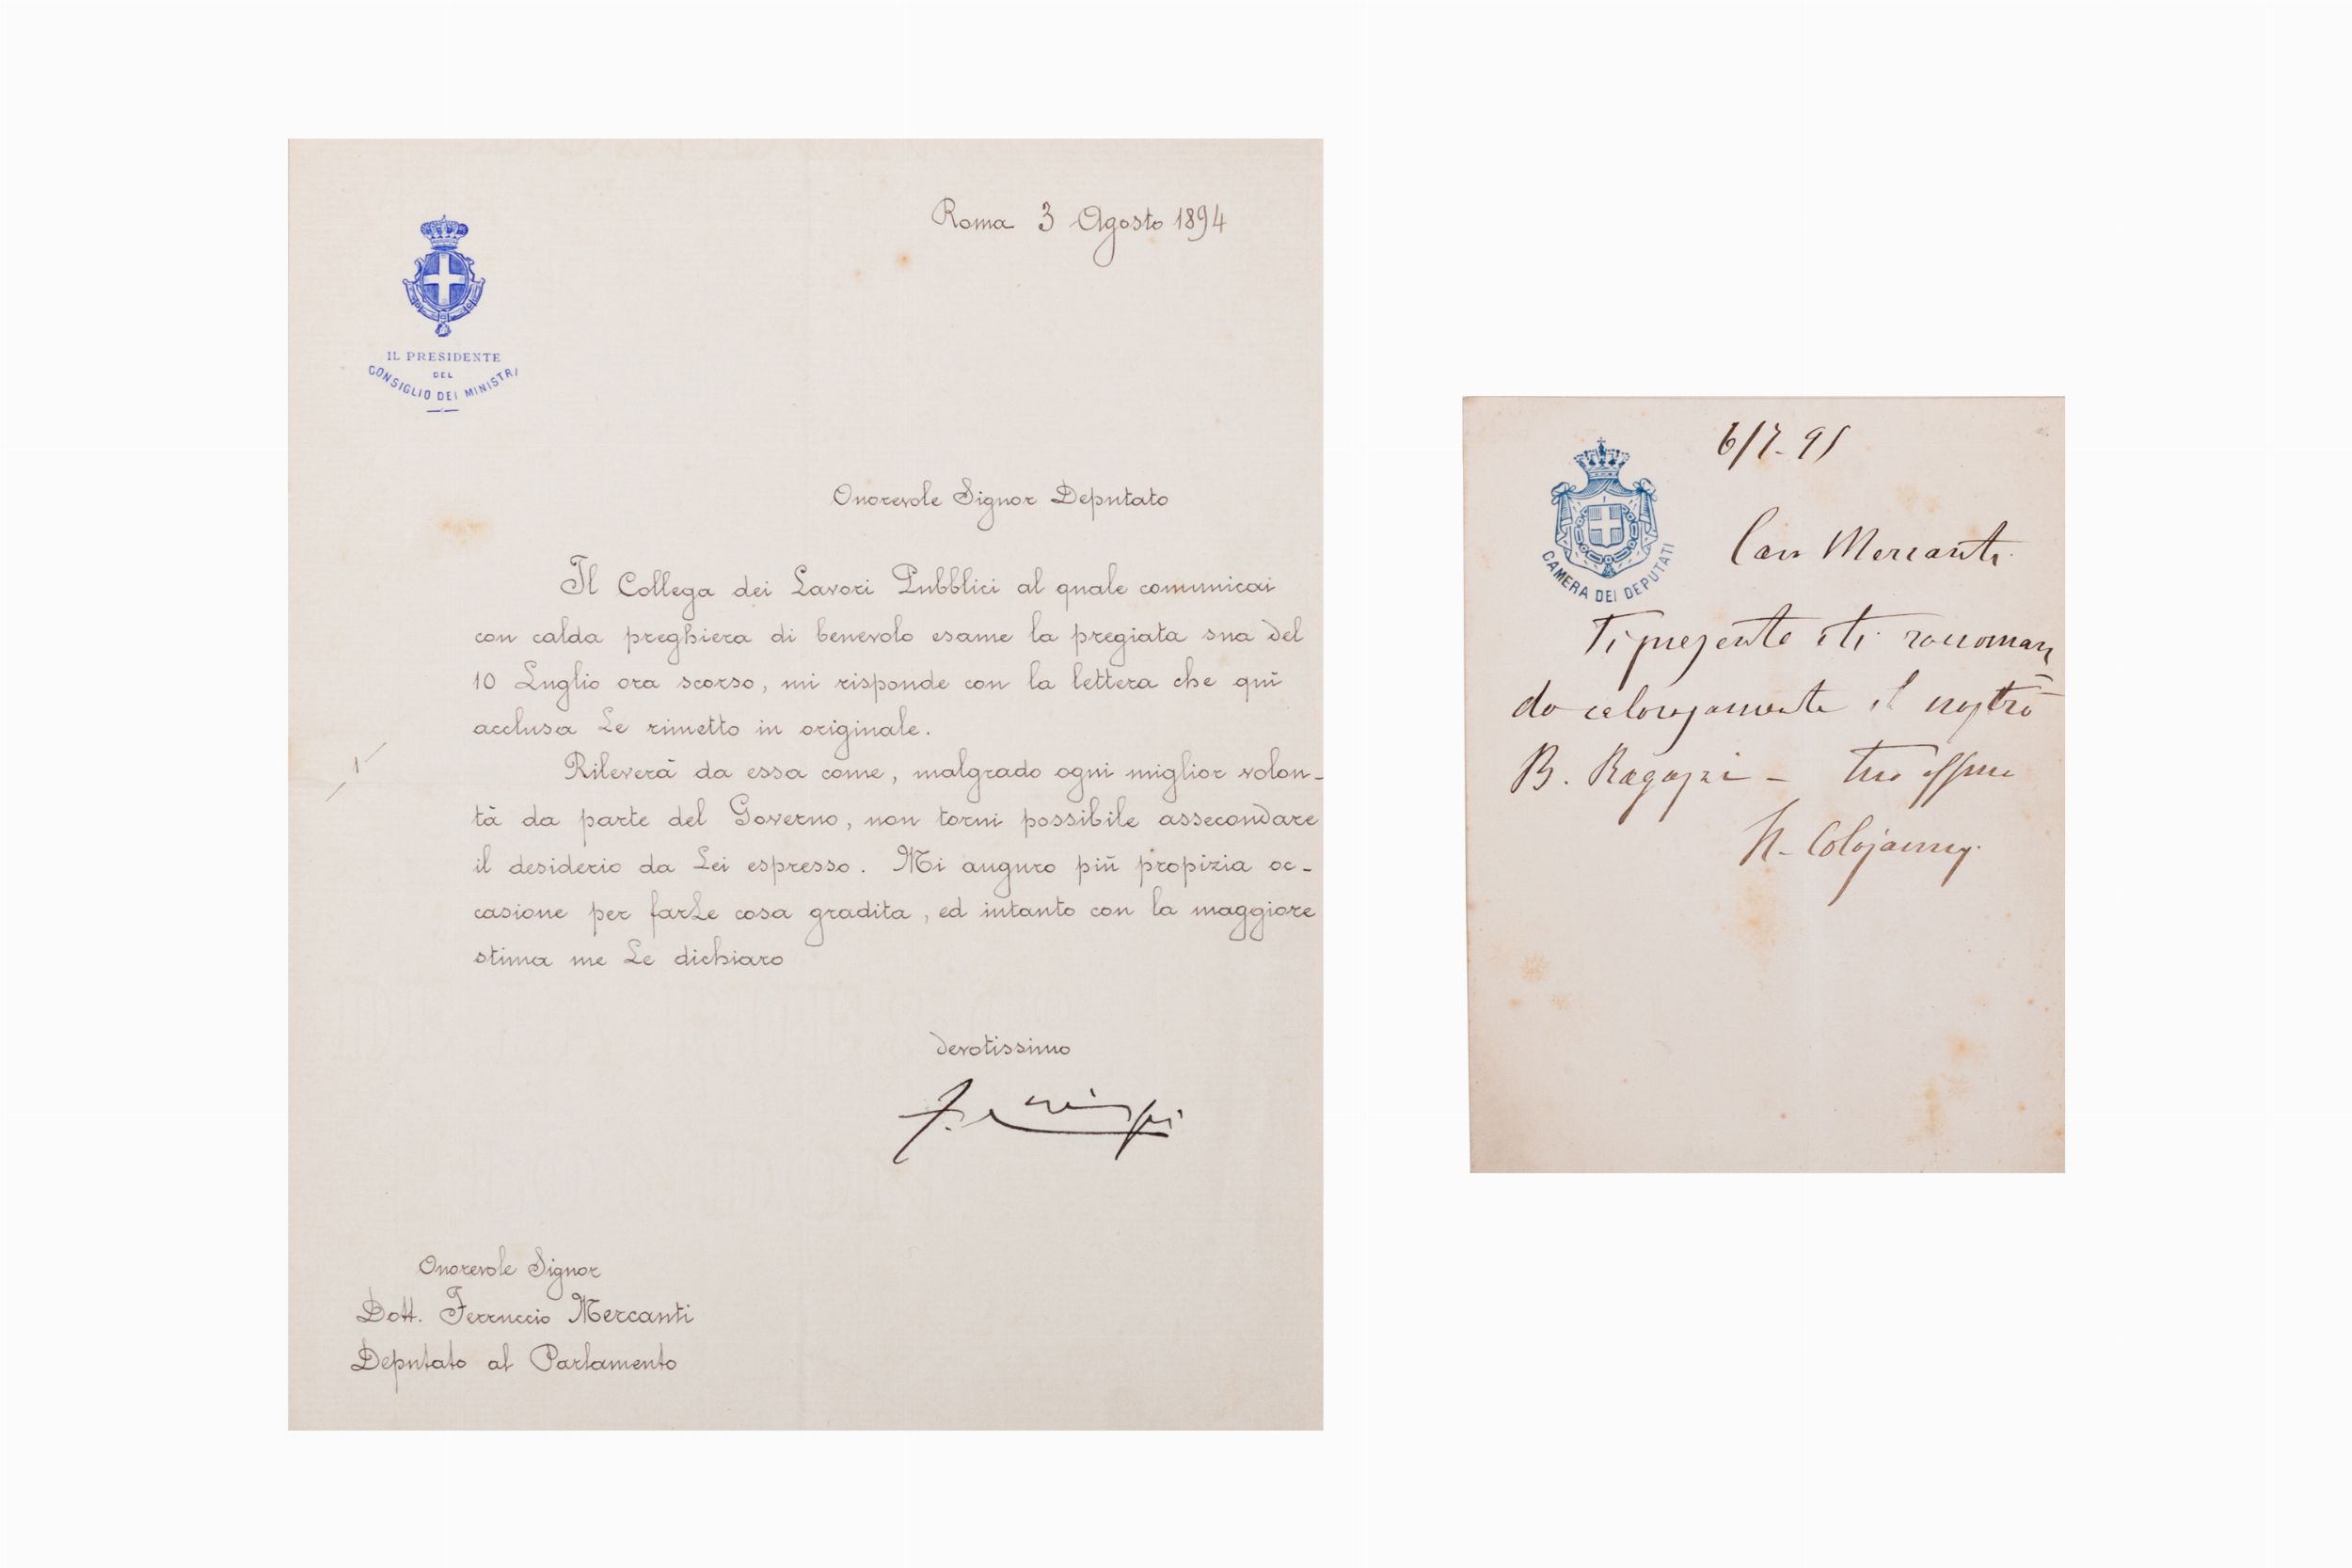 Roma 3 Agosto 1894
IL PRESIDENTE
DEL
CONSIGLIO DEI MINISTRI
Onorevole Signor Deputato
Il Collega dei Lavori Pubblici al quale comunicai
con calda preghiera di benevolo esame la pregiata sua del
10 Luglio ora scorso, mi risponde con la lettera che quì
acclusa Le rimetto in originale.
Rileverà da essa come, malgrado ogni miglior volon-
tà da parte del Governo, non torni possibile assecondare
il desiderio da Lei espresso. Mi auguro più propizia oc-
casione per farLe cosa gradita, ed intanto con la maggiore
stima me Le dichiaro
devotissimo
F. Crispi
Onorevole Signor
Dott. Ferruccio Mercanti
Deputato al Parlamento
6/7-95
CAMERA DEI DEPUTATI
Caro Mercanti
Ti presento e ti raccoman
do calorosamente il nostro
B. Ragazzi - tuo
N. Colajanni